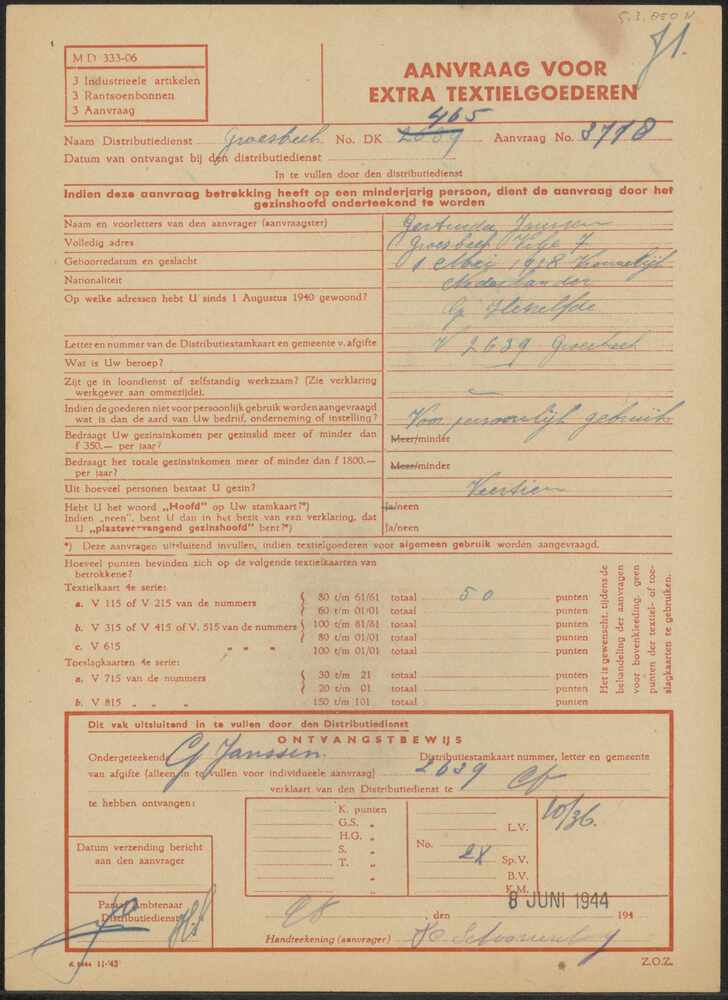 M D 333-06
3 Industrieele artikelen
3 Rantsoenbonnen
3 Aanvraag
71.
AANVRAAG VOOR
EXTRA TEXTIELGOEDEREN
465
Naam Distributiedienst Groesbeek No. DK 2639 Aanvraag No. 3718
Datum van ontvangst bij den distributiedienst
In te vullen door den distributiedienst
Indien deze aanvraag betrekking heeft op een minderjarig persoon, dient de aanvraag door het
gezinshoofd onderteekend te worden
Naam en voorletters van den aanvrager (aanvraagster) Gertruda Janssen
Volledig adres Groesbeek 7
Geboortedatum en geslacht 1 Mei 1918 Vrouwelijk
Nationaliteit Nederlander
Op welke adressen hebt U sinds 1 Augustus 1940 gewoond? Op Hetzelfde
Letter en nummer van de Distributiestamkaart en gemeente v. afgifte V 2639 Groesbeek
Wat is Uw beroep?
Zijt ge in loondienst of zelfstandig werkzaam? (Zie verklaring
werkgever aan ommezijde).
Indien de goederen niet voor persoonlijk gebruik worden aangevraagd
wat is dan de aard van Uw bedrijf, onderneming of instelling? Voor persoonlijk gebruik
Bedraagt Uw gezinsinkomen per gezinslid meer of minder dan
f 350.— per jaar? Meer/minder
Bedraagt het totale gezinsinkomen meer of minder dan f 1800.—
per jaar? Meer/minder
Uit hoeveel personen bestaat U gezin? Veertien
Hebt U het woord „Hoofd” op Uw stamkaart?*) Ja/neen
Indien „neen”, bent U dan in het bezit van een verklaring, dat
U „plaatsvervangend gezinshoofd” bent?*) Ja/neen
*) Deze aanvragen uitsluitend invullen, indien textielgoederen voor algemeen gebruik worden aangevraagd.
Hoeveel punten bevinden zich op de volgende textielkaarten van
betrokkene?
Textielkaart 4e serie:
a. V 115 of V 215 van de nummers { 80 t/m 61/61 totaal 50 punten
60 t/m 01/01 totaal punten
b. V 315 of V 415 of V. 515 van de nummers { 100 t/m 81/81 totaal punten
80 t/m 01/01 totaal punten
c. V 615 „ „ „ 100 t/m 01/01 totaal punten
Toeslagkaarten 4e serie:
a. V 715 van de nummers { 30 t/m 21 totaal punten
20 t/m 01 totaal punten
b. V 815 „ „ „ 150 t/m 101 totaal punten
Het is gewenscht, tijdens de
behandeling der aanvragen
voor bovenkleeding, geen
punten der textiel- of toe-
slagkaarten te gebruiken.
Dit vak uitsluitend in te vullen door den Distributiedienst
ONTVANGSTBEWIJS
Ondergeteekende G Janssen Distributiestamkaart nummer, letter en gemeente
van afgifte (alleen in te vullen voor individueele aanvraag) 2639
verklaart van den Distributiedienst te
te hebben ontvangen:
K. punten
G.S. „
H.G. „
S. „
T. „
No. 2X
L.V.
Sp.V.
B.V.
K.M.
10/36.
Datum verzending bericht
aan den aanvrager
Paraaf Ambtenaar
Distributiedienst
8 JUNI 1944
, den 194
Handteekening (aanvrager)
K 1944 11-'43
Z.O.Z.